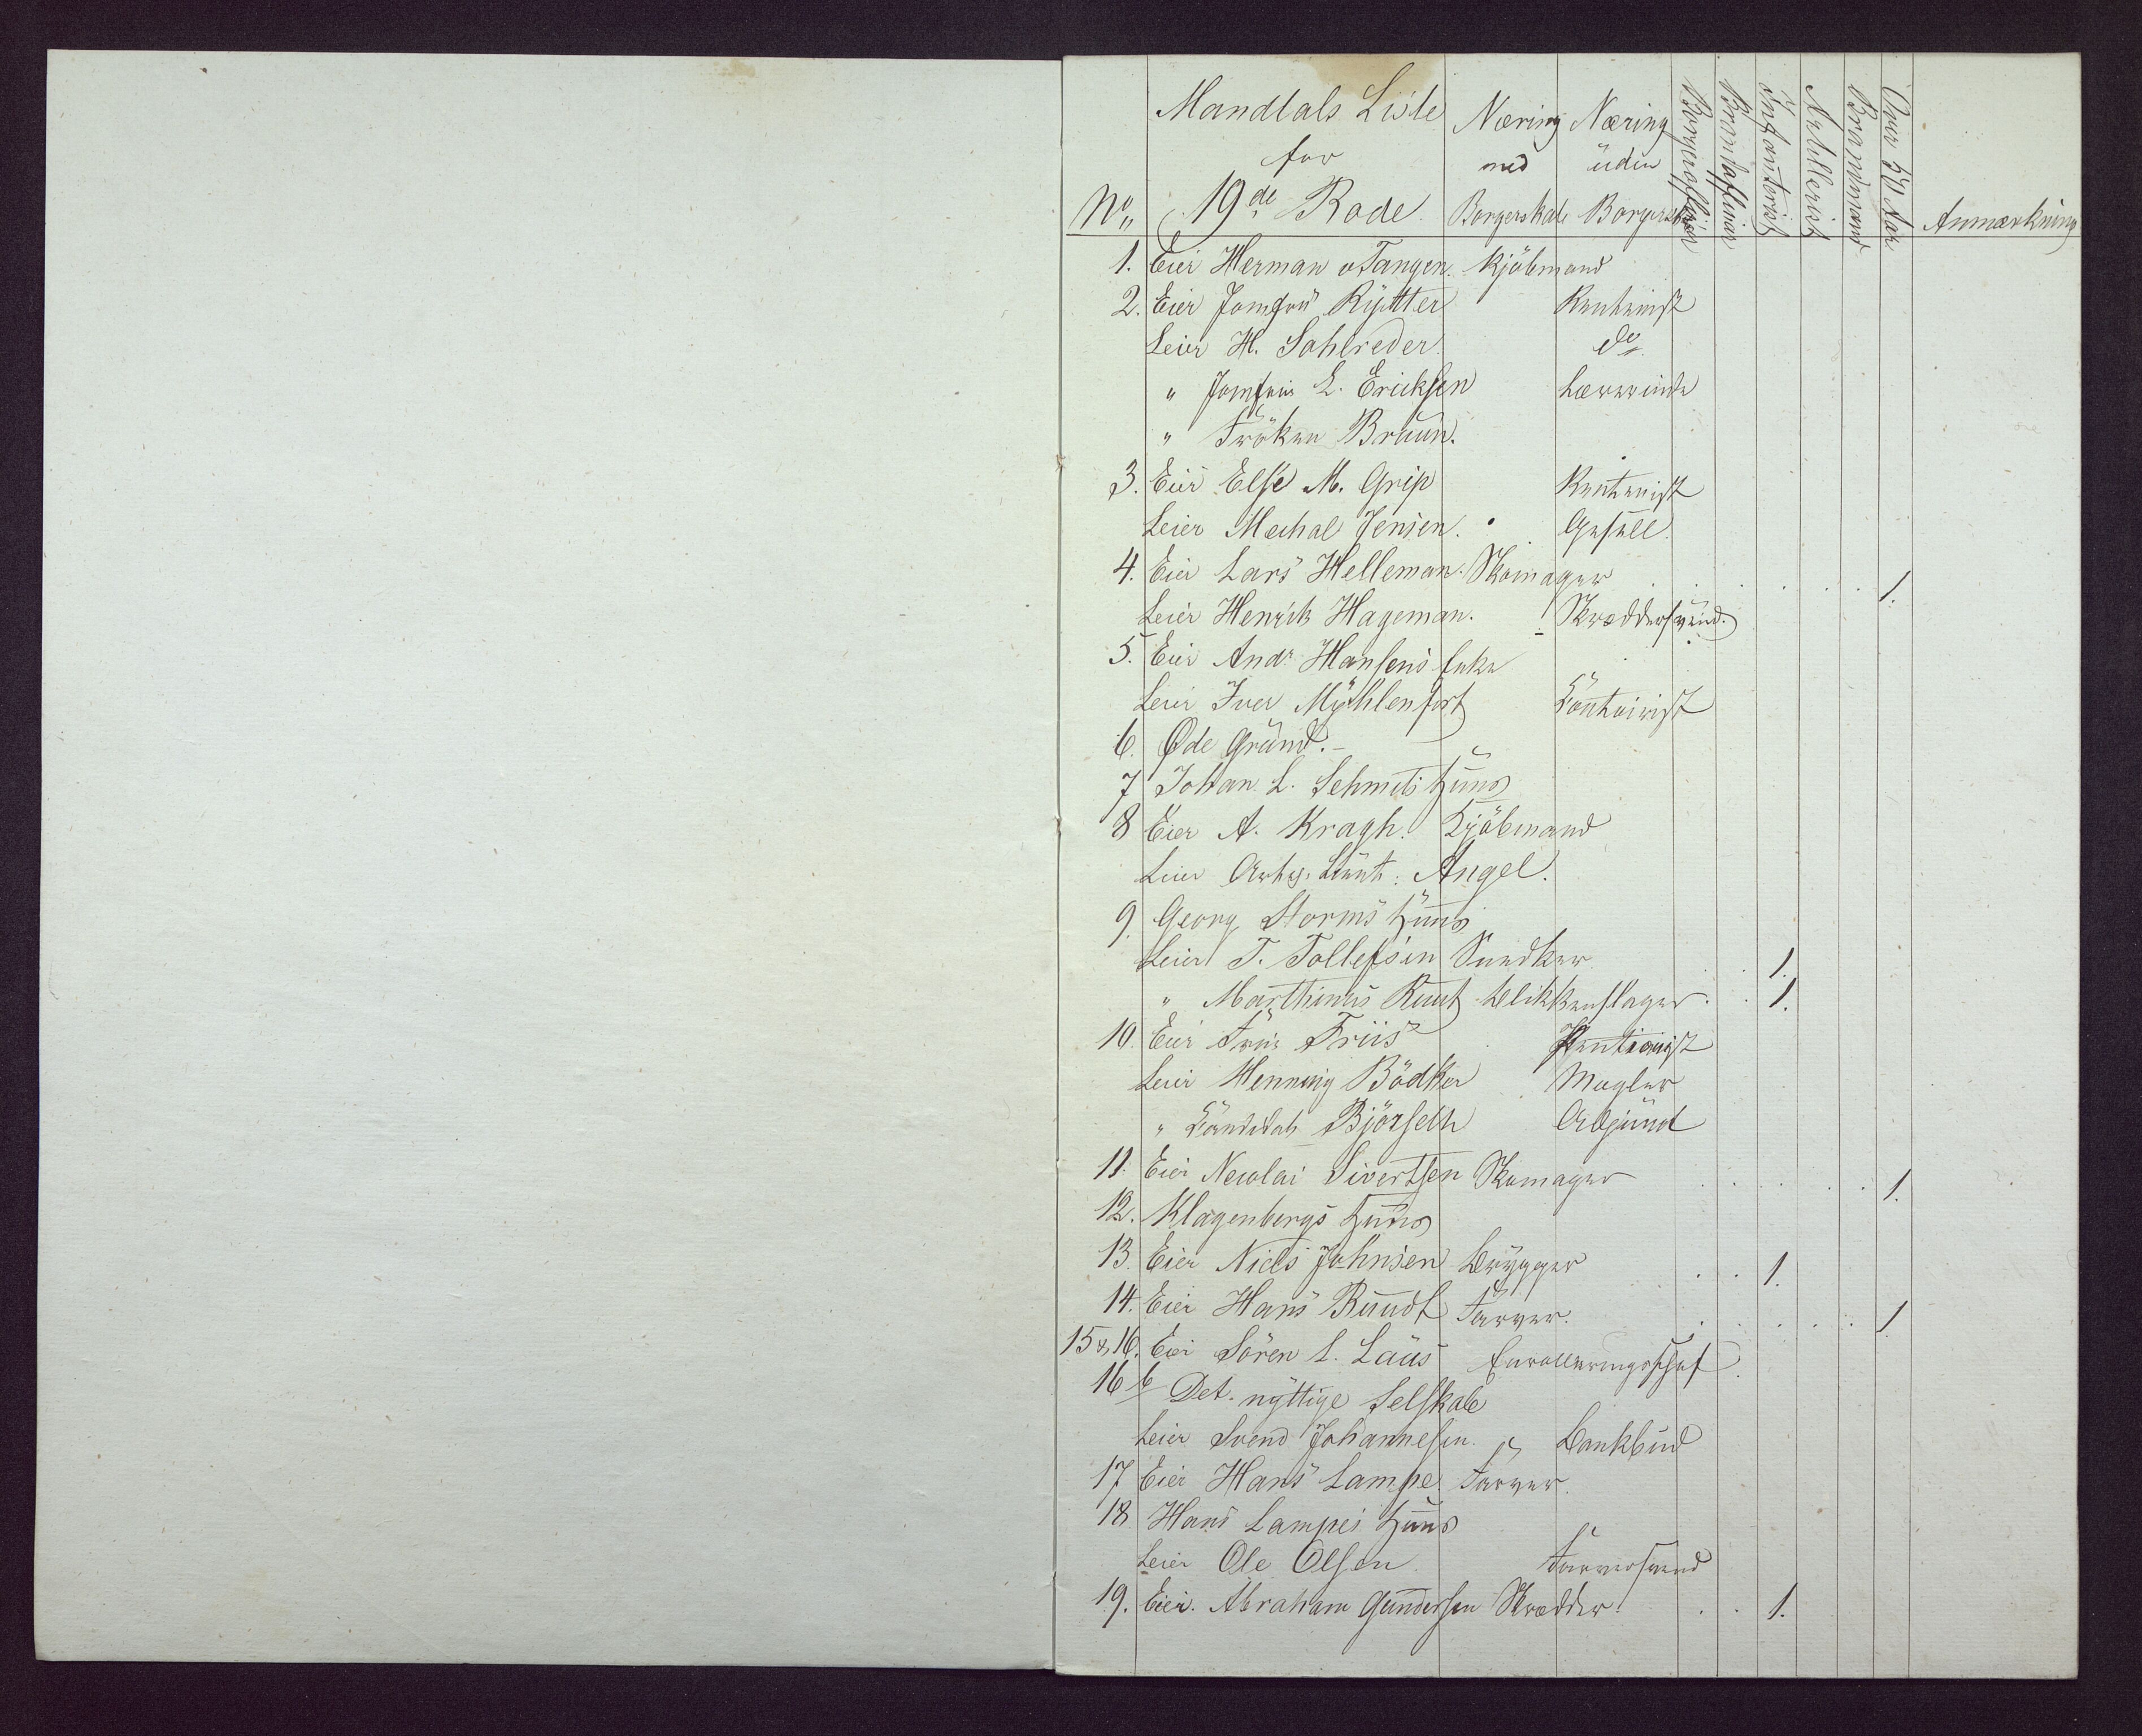 Mandtals Liste
for
19de Rode
No
Næring med Borgerskab
Næring uden Borgerskab
Borgerofficier
Brandofficier
Infanterist
Artillerist
Brandmand
Over 50 Aar
Anmærkning
1. Eier Herman v Tangen. Kjöbmand
2. Eier Jomfru Rÿtter Rentenist
Leier H. Sahlreder. do
" Jomfru L. Ericksen Lærerinde
" Fröken Bruun.
3. Eier Else M. Grip Rentenist
Leier Mechal Jensen. Gesell
4. Eier Lars Helleman. Skomager 1.
Leier Henrik Hageman. Skræddersvend.
5. Eier Andr Hansens Enke
Leier Iver Mÿhlenfort Contoirist
6. Øde Grund.
7 Johan L. Schmits Huus
8 Eier A. Kragh. Kjöbmand
Leier Leint: Angel.
9. Georg Storms Huus
Leier T. Tollefsen Snedker 1.
" Marthinus Ruut Blikkenslager 1.
10. Eier Frue Friis Pentionist
Leier Henning Bödker Mægler
" Candidat Björseth Adjunct
11. Eier Nicolai Sivertsen Skomager 1.
12. Klagenbergs Huus
13. Eier Niels Johnsen Brÿgger 1.
14. Eier Hans Ruudt Farver. 1
15 & 16. Eier Sören L. Laus Enrolleringschef
16 b Det nÿttige Selskab
Leier Svend Johannesen. Bankbud
17 Eier Hans Lampe Farver.
18 Hans Lampes Huus
Leier Ole Olsen Farversvend
19. Eier. Abraham Gundersen Skrædder. 1.